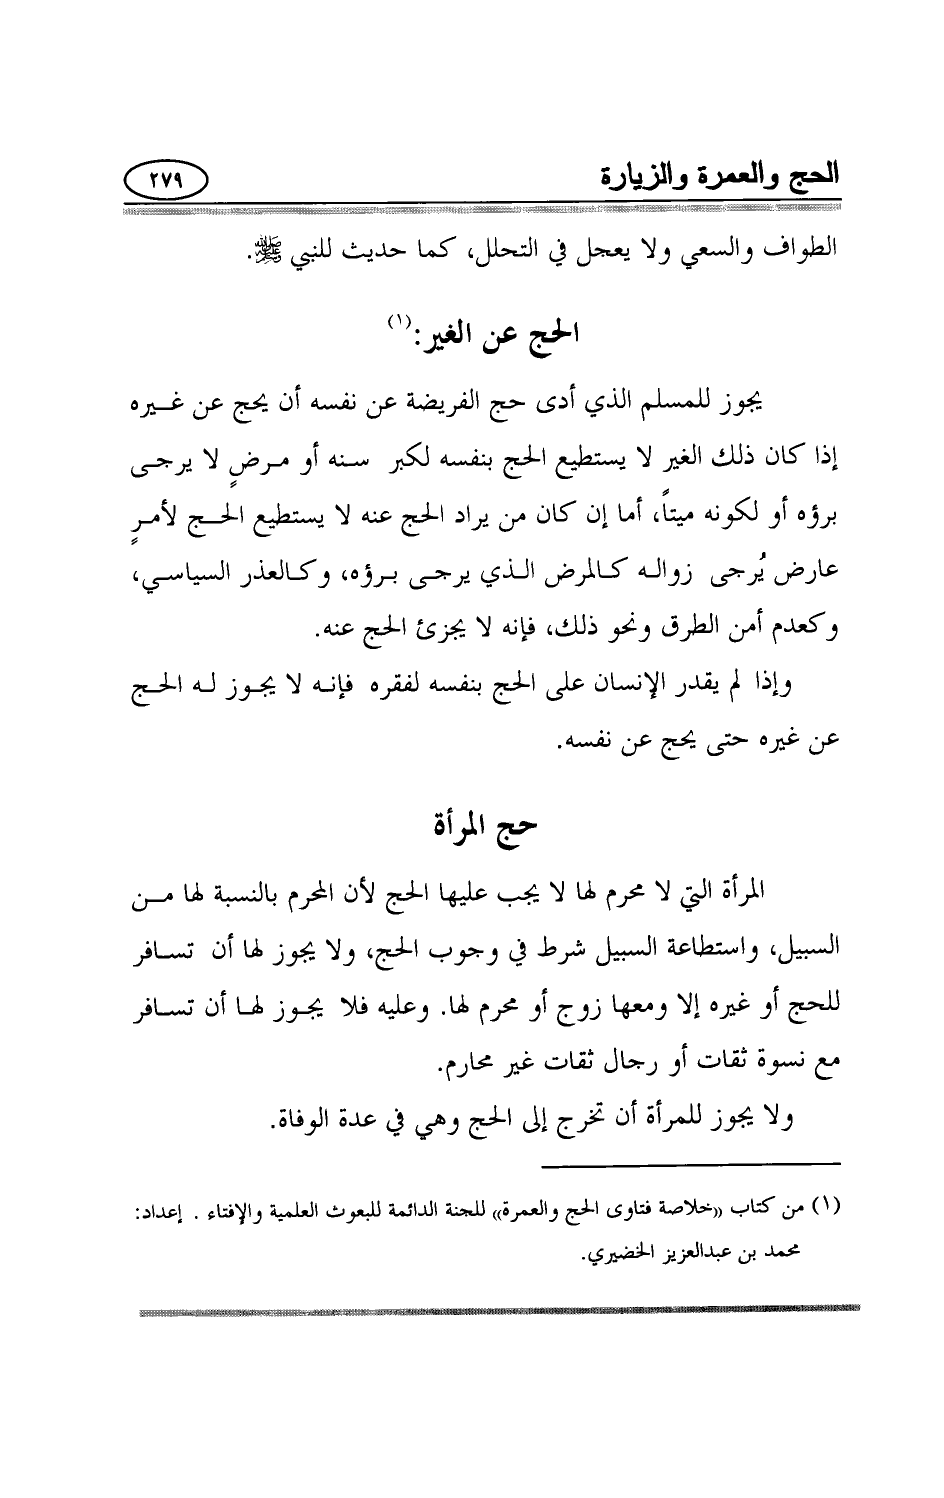 الحج والعمرة والزيارة
٢٧٩
الطواف والسعي ولا يعجل في التحلل، كما حديث للنبي ﷺ.
الحج عن الغير:(١)
يجوز للمسلم الذي أدى حج الفريضة عن نفسه أن يحج عن غـيره
إذا كان ذلك الغير لا يستطيع الحج بنفسه لكبر سـنه أو مـرضٍ لا يرجـى
برؤه أو لكونه ميتاً، أما إن كان من يراد الحج عنه لا يستطيع الحـج لأمـرٍ
عارض يُرجى زوالـه كـالمرض الـذي يرجـى بـرؤه، وكـالعذر السياسـي،
وكعدم أمن الطرق ونحو ذلك، فإنه لا يجزئ الحج عنه.
وإذا لم يقدر الإنسان على الحج بنفسه لفقره فإنـه لا يجـوز لـه الحـج
عن غيره حتى يحج عن نفسه.
حج المرأة
المرأة التي لا محرم لها لا يجب عليها الحج لأن المحرم بالنسبة لها مـن
السبيل، واستطاعة السبيل شرط في وجوب الحج، ولا يجوز لها أن تسـافر
للحج أو غيره إلا ومعها زوج أو محرم لها. وعليه فلا يجـوز لهـا أن تسـافر
مع نسوة ثقات أو رجال ثقات غير محارم.
ولا يجوز للمرأة أن تخرج إلى الحج وهي في عدة الوفاة.
(١) من كتاب «خلاصة فتاوى الحج والعمرة» للجنة الدائمة للبعوث العلمية والإفتاء . إعداد:
محمد بن عبدالعزيز الخضيري.